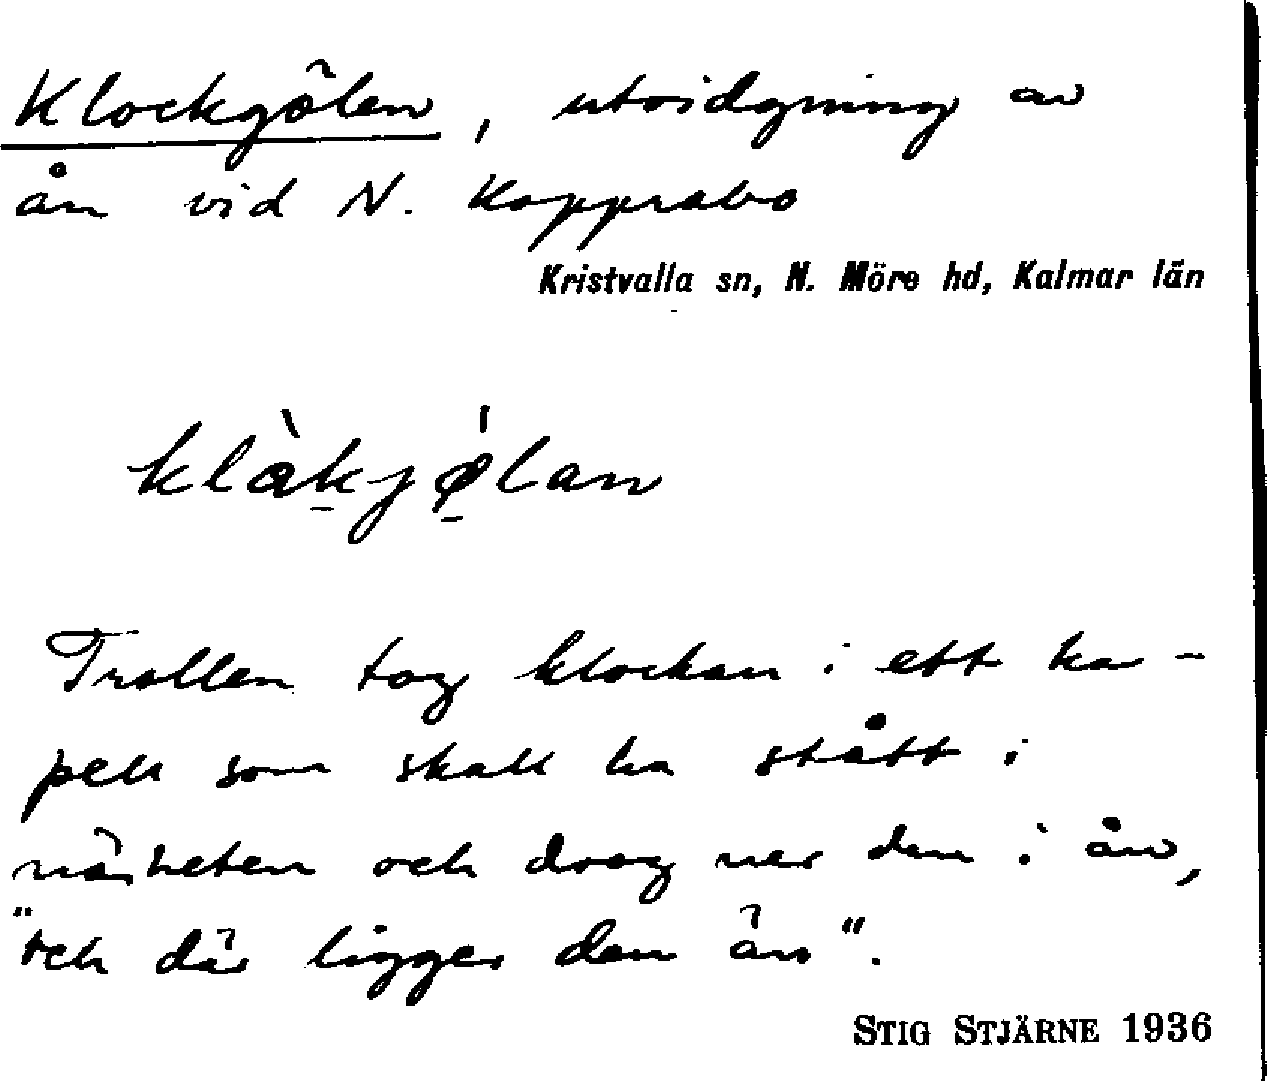 Klockgölen, utvidgning av
ån vid N. Kopprabo
Kristvalla sn, N. Möre hd, Kalmar län
klàkjǿlan
Trollen tog klockan i ett ka-
pell som skall ha stått i
närheten och drog ner den i ån,
"och där ligger den än".
STIG STJÄRNE 1936